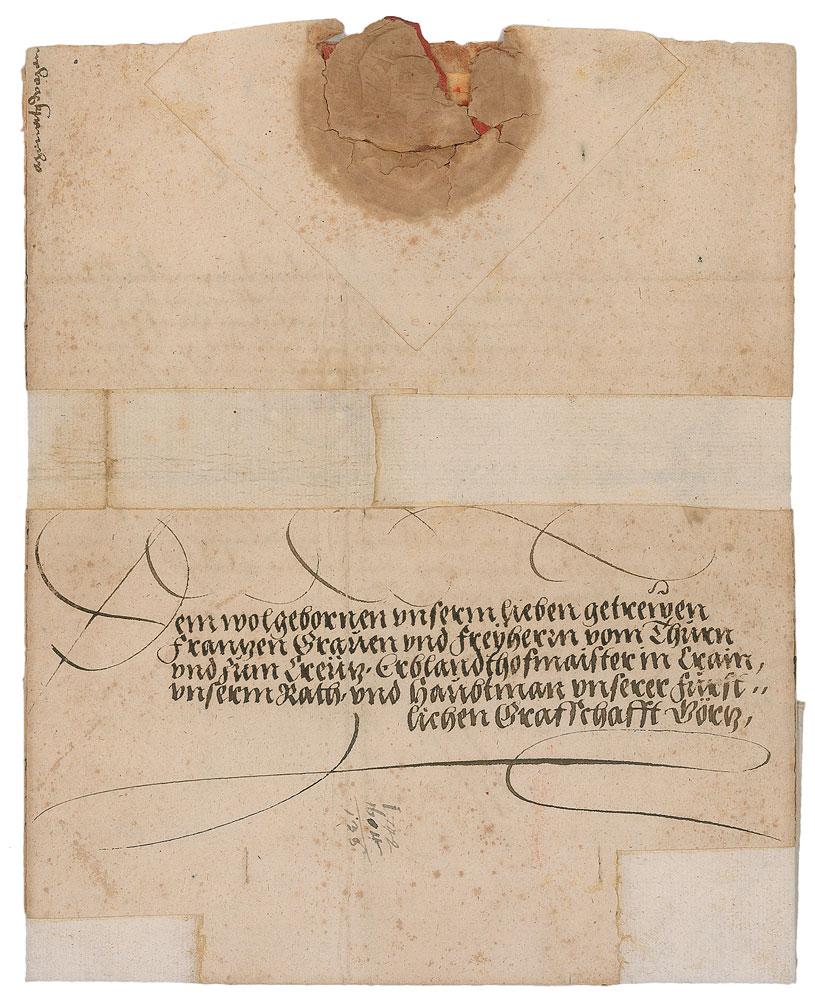 Dem wolgebornen vnserm lieben getrewen
Frantzen Grauen vnd Freyherrn vom Thurn
vnd zum Creutz, Erblandthofmaister in Crain,
vnserm Rath, vnd Haubtman vnserer Fürst..
lichen Grafschafft Görtz,